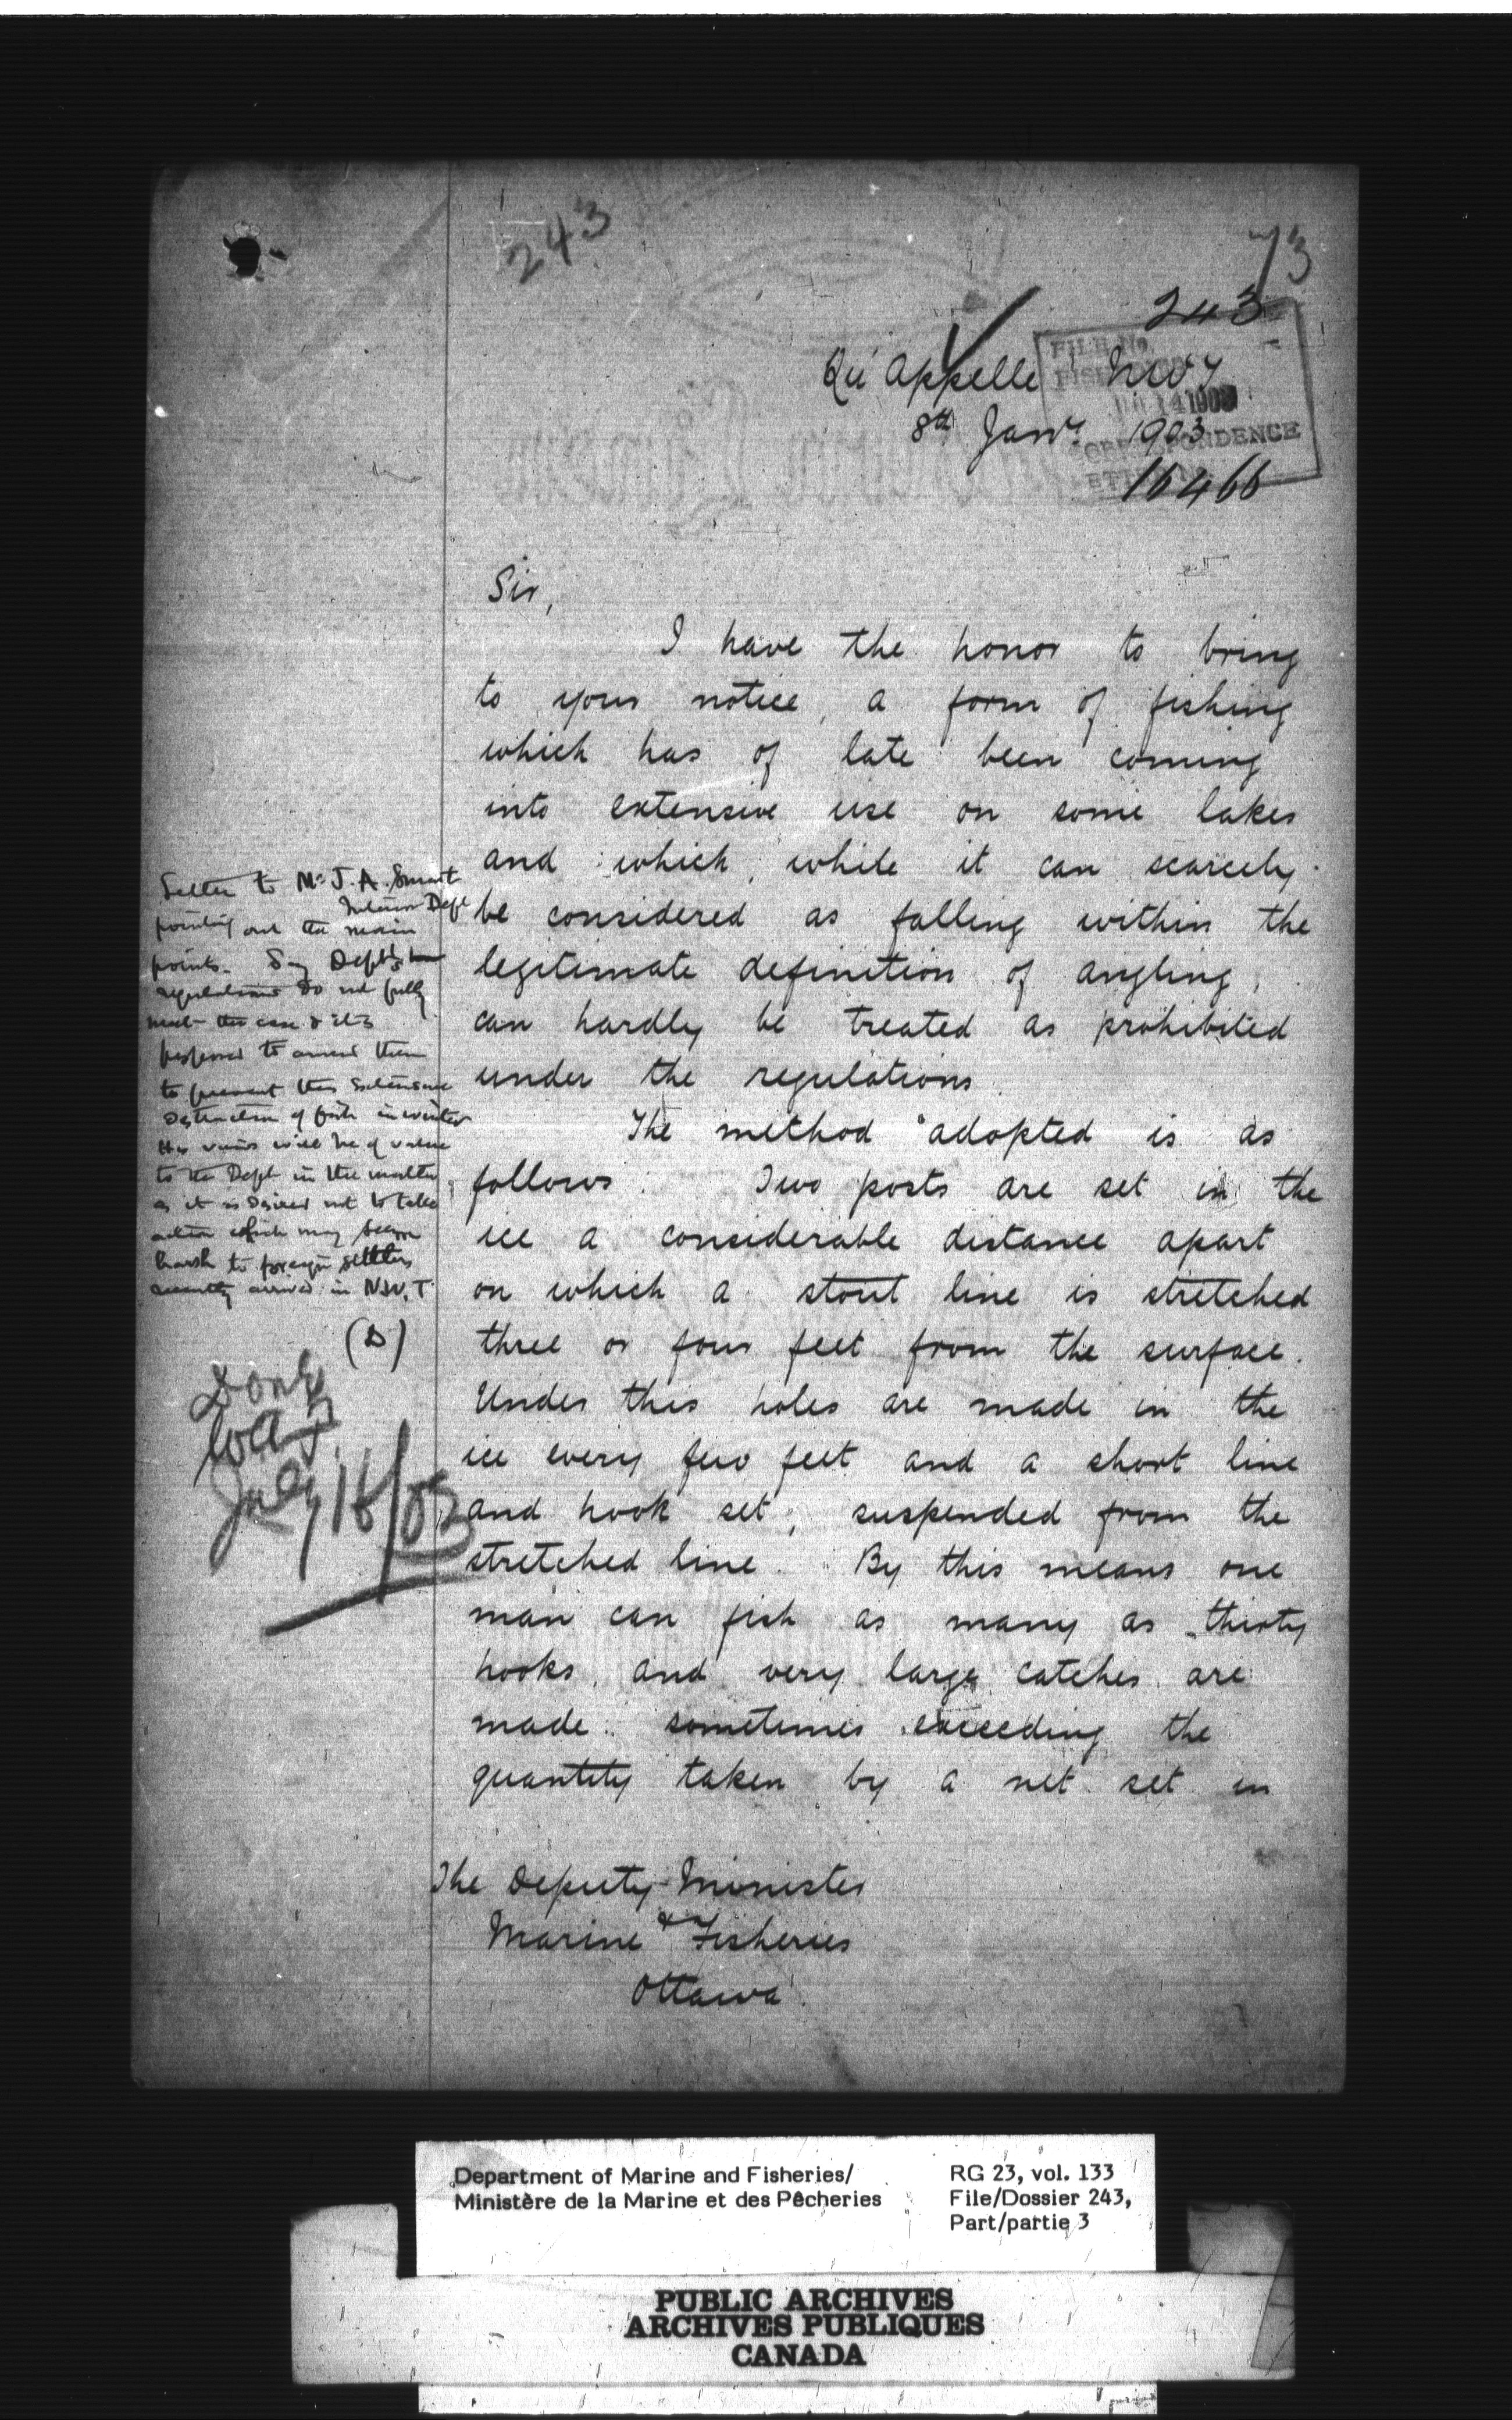 243
73
243
FILE No.
Qu'Appelle NWT
JAN 14 1903
8th Jany. 1903
CORRESPONDENCE
16466
Sir,
I have the honor to bring
to your notice, a form of fishing
which has of late been coming
into extensive use on some lakes
and which, while it can scarcely
be considered as falling within the
legitimate definition of angling,
can hardly be treated as prohibited
under the regulations.
The method adopted is as
follows. Two posts are set in the
ice a considerable distance apart
on which a stout line is stretched
three or four feet from the surface.
Under this holes are made in the
ice every few feet and a short line
and hook set, suspended from the
stretched line. By this means one
man can fish as many as thirty
hooks, and very large catches are
made. sometimes exceeding the
quantity taken by a net set in
The Deputy Minister
Marine & Fisheries
Ottawa
Letter to Mr J. A. Smart
Interior Dept
pointing out the main
points. Say Dept's
regulations do not fully
meet the case & it is
proposed to amend them
to prevent this extensive
destruction of fish in winter
His views will be of value
to the Dept in the matter
as it is desired not to take
action which may seem
harsh to foreign settlers
recently arrived in N.W.T.
(D)
Done
July 16/03
Department of Marine and Fisheries/
Ministère de la Marine et des Pêcheries
RG 23, vol. 133
File/Dossier 243,
Part/partie 3
PUBLIC ARCHIVES
ARCHIVES PUBLIQUES
CANADA